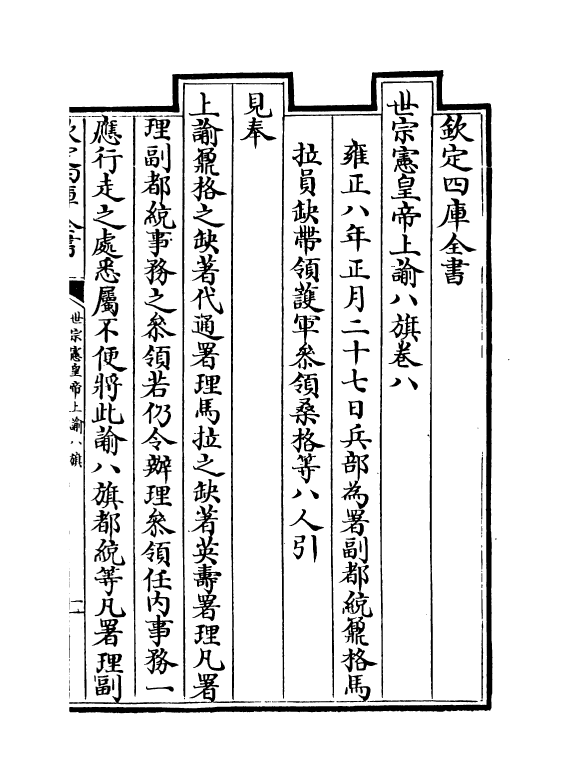 欽定四庫全書
世宗憲皇帝上諭八旗卷八
雍正八年正月二十七日兵部為署副都統鼐格馬
拉員缺帶領護軍叅領桑格等八人引
見奉
上諭鼐格之缺著代通署理馬拉之缺著英壽署理凡署
理副都統事務之叅領若仍令辦理叅領任内事務一
應行走之處悉屬不便將此諭八旗都統等凡署理副
欽定四庫全書
世宗憲皇帝上諭八旗
一